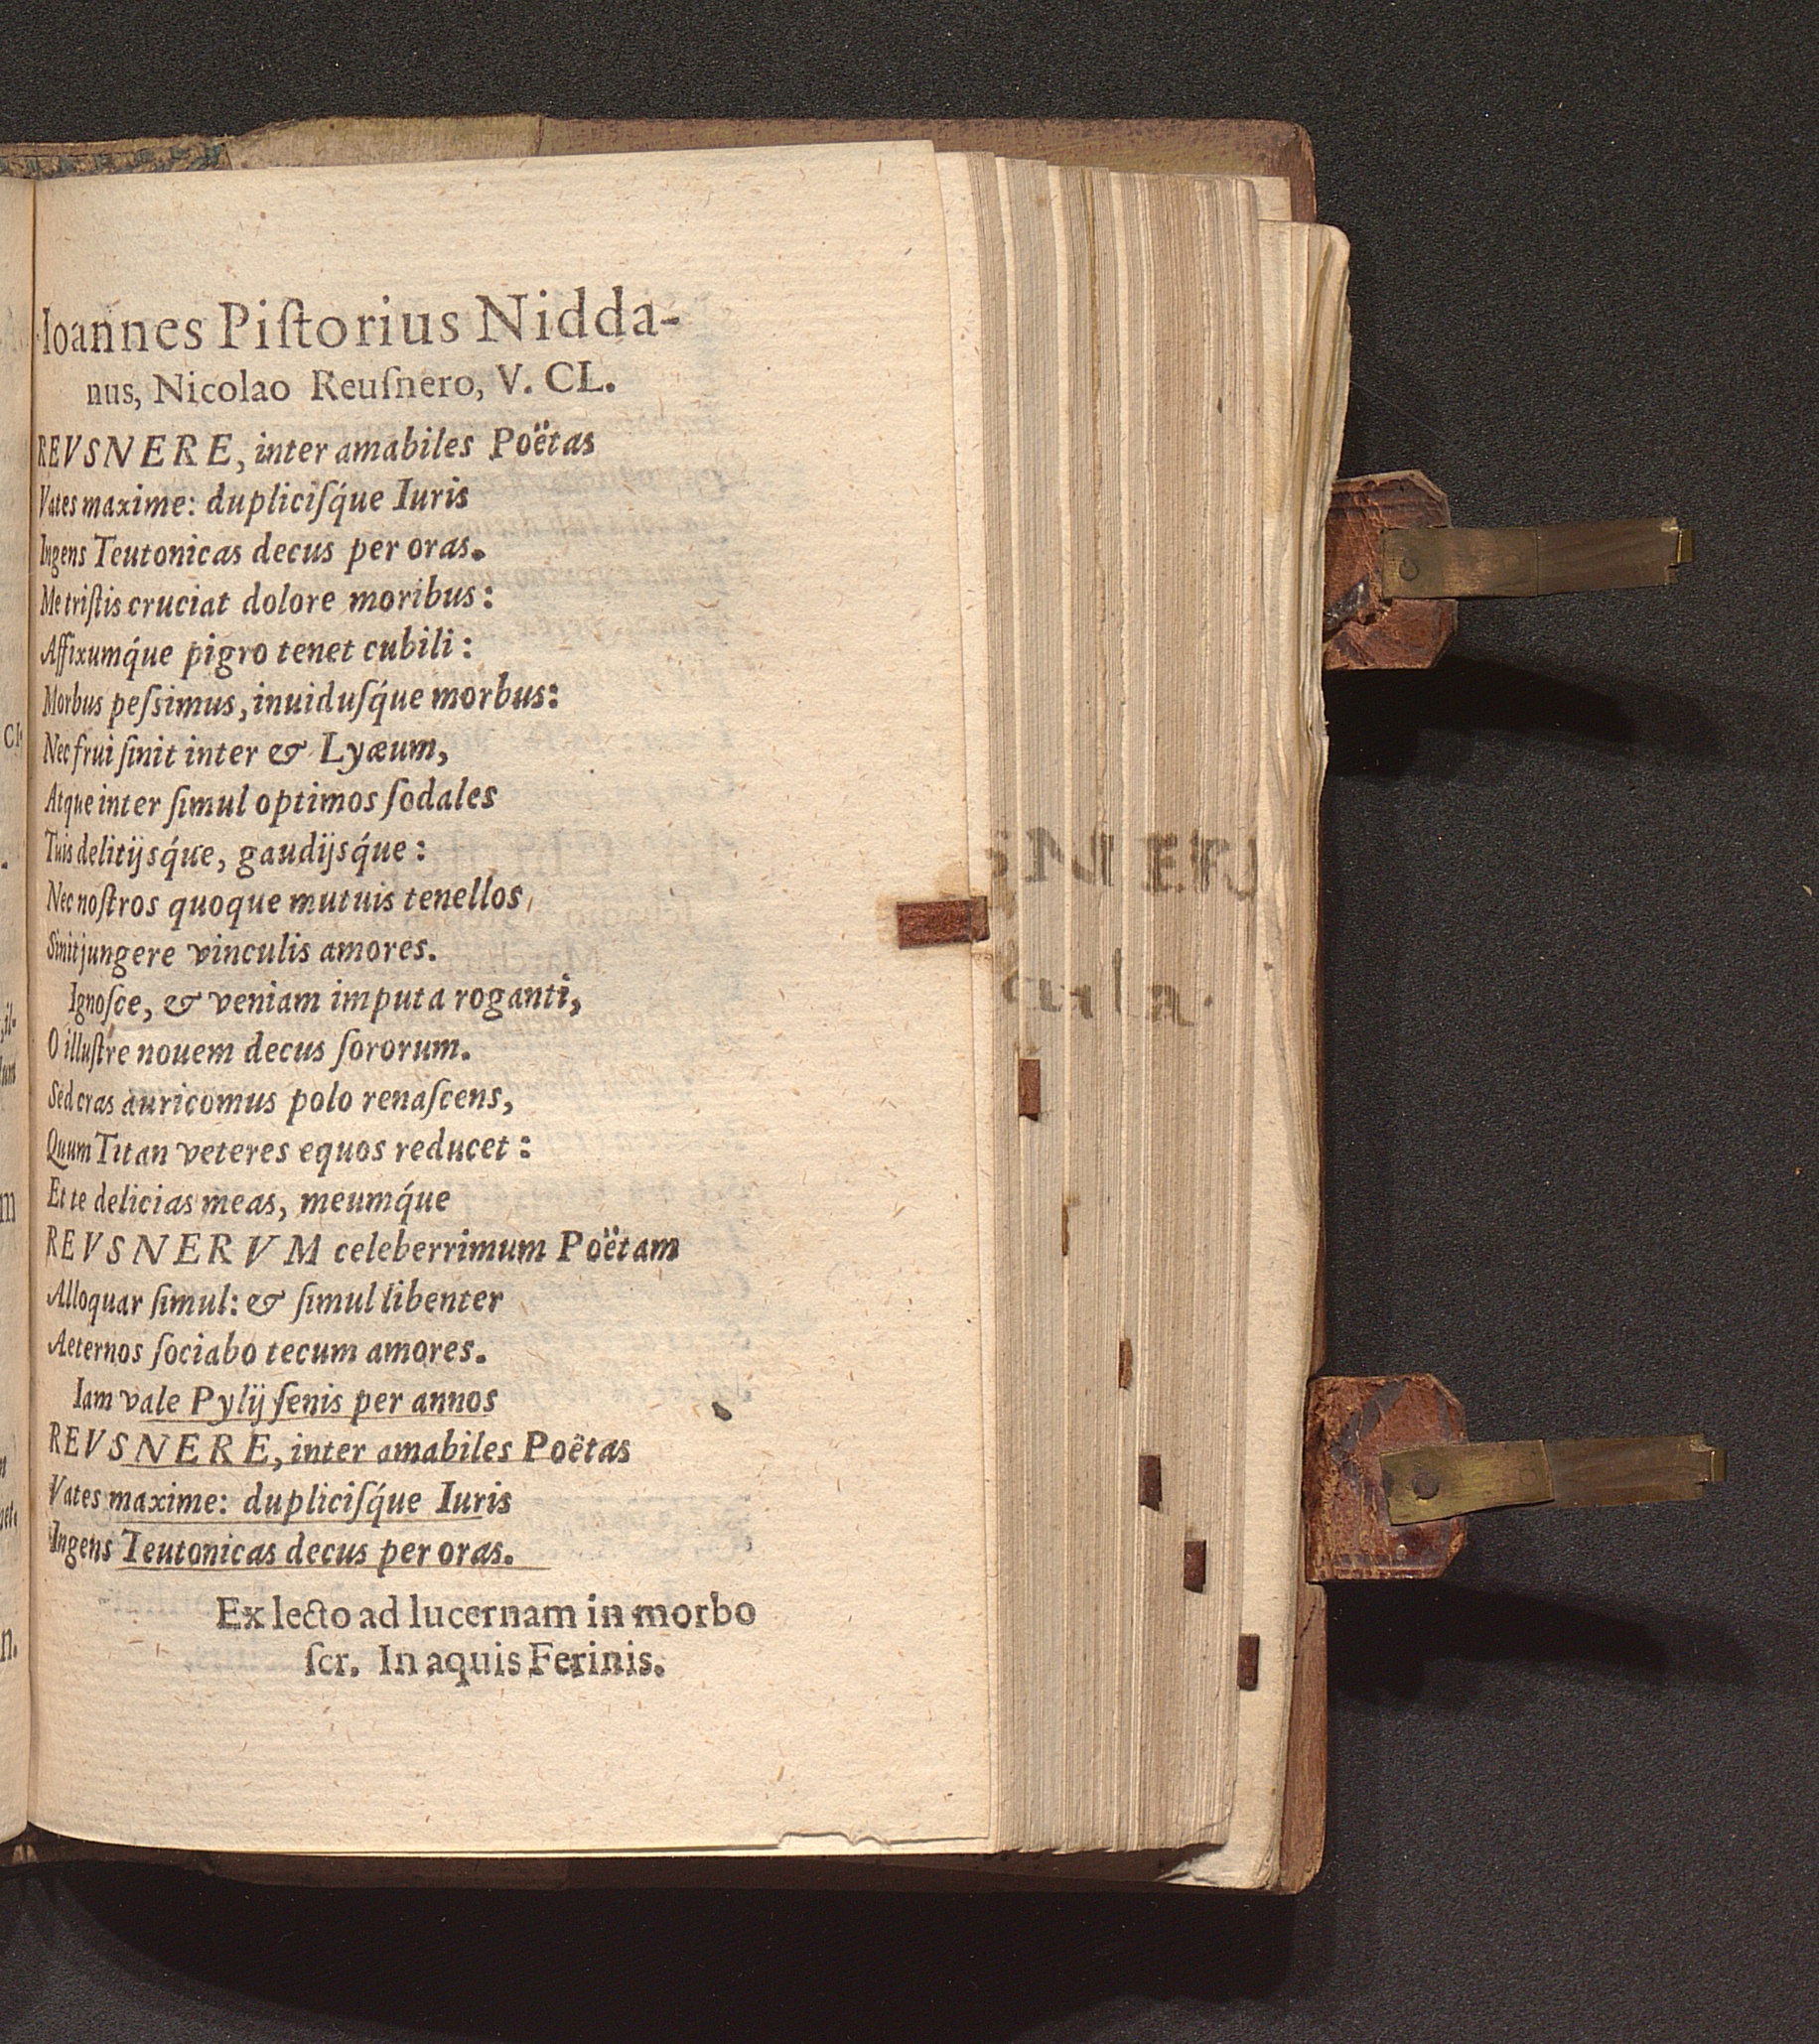 Ioannes Piſtorius Nidda-
nus, Nicolao Reuſnero, V. CL.
REVSNERE, inter amabiles Poëtas
Vates maxime: dupliciſq́ue Iuris
Ingens Teutonicas decus per oras.
Me triſtis cruciat dolore moribus:
Affixumq́ue pigro tenet cubili:
Morbus peſsimus, inuiduſq́ue morbus:
Nec frui ſinit inter & Lyæum,
Atque inter ſimul optimos ſodales
Tuis delitijsq́ue, gaudijsq́ue:
Nec noſtros quoque mutuis tenellos,
Sinit jungere vinculis amores.
Ignoſce, & veniam imputa roganti,
O illuſtre nouem decus ſororum.
Sed cras auricomus polo renaſcens,
Quum Titan veteres equos reducet:
Et te delicias meas, meumq́ue
REVSNERVM celeberrimum Poëtam
Alloquar ſimul: & ſimul libenter
Aeternos ſociabo tecum amores.
Iam vale Pylij ſenis per annos
REVSNERE, inter amabiles Poëtas
Vates maxime: dupliciſq́ue Iuris
Ingens Teutonicas decus per oras.
Ex lecto ad lucernam in morbo
ſcr. In aquis Ferinis.
SNERI